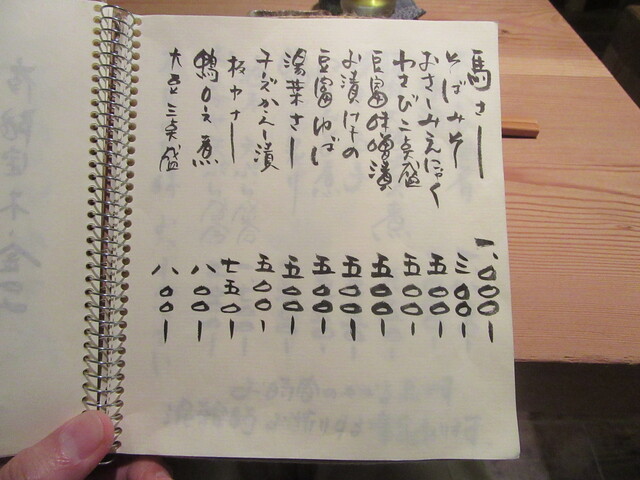 馬さし 一、〇〇〇ー
そばみそ 三〇〇ー
おさしみこんにゃく 五〇〇ー
わさび三点盛 五〇〇ー
豆富味噌漬 五〇〇ー
お漬けもの 五〇〇ー
豆富ゆば 五〇〇ー
湯葉さし 五〇〇ー
チーズからし漬 五〇〇ー
七五〇ー
鴨ロース煮 八〇〇ー
大豆三点盛 八〇〇ー